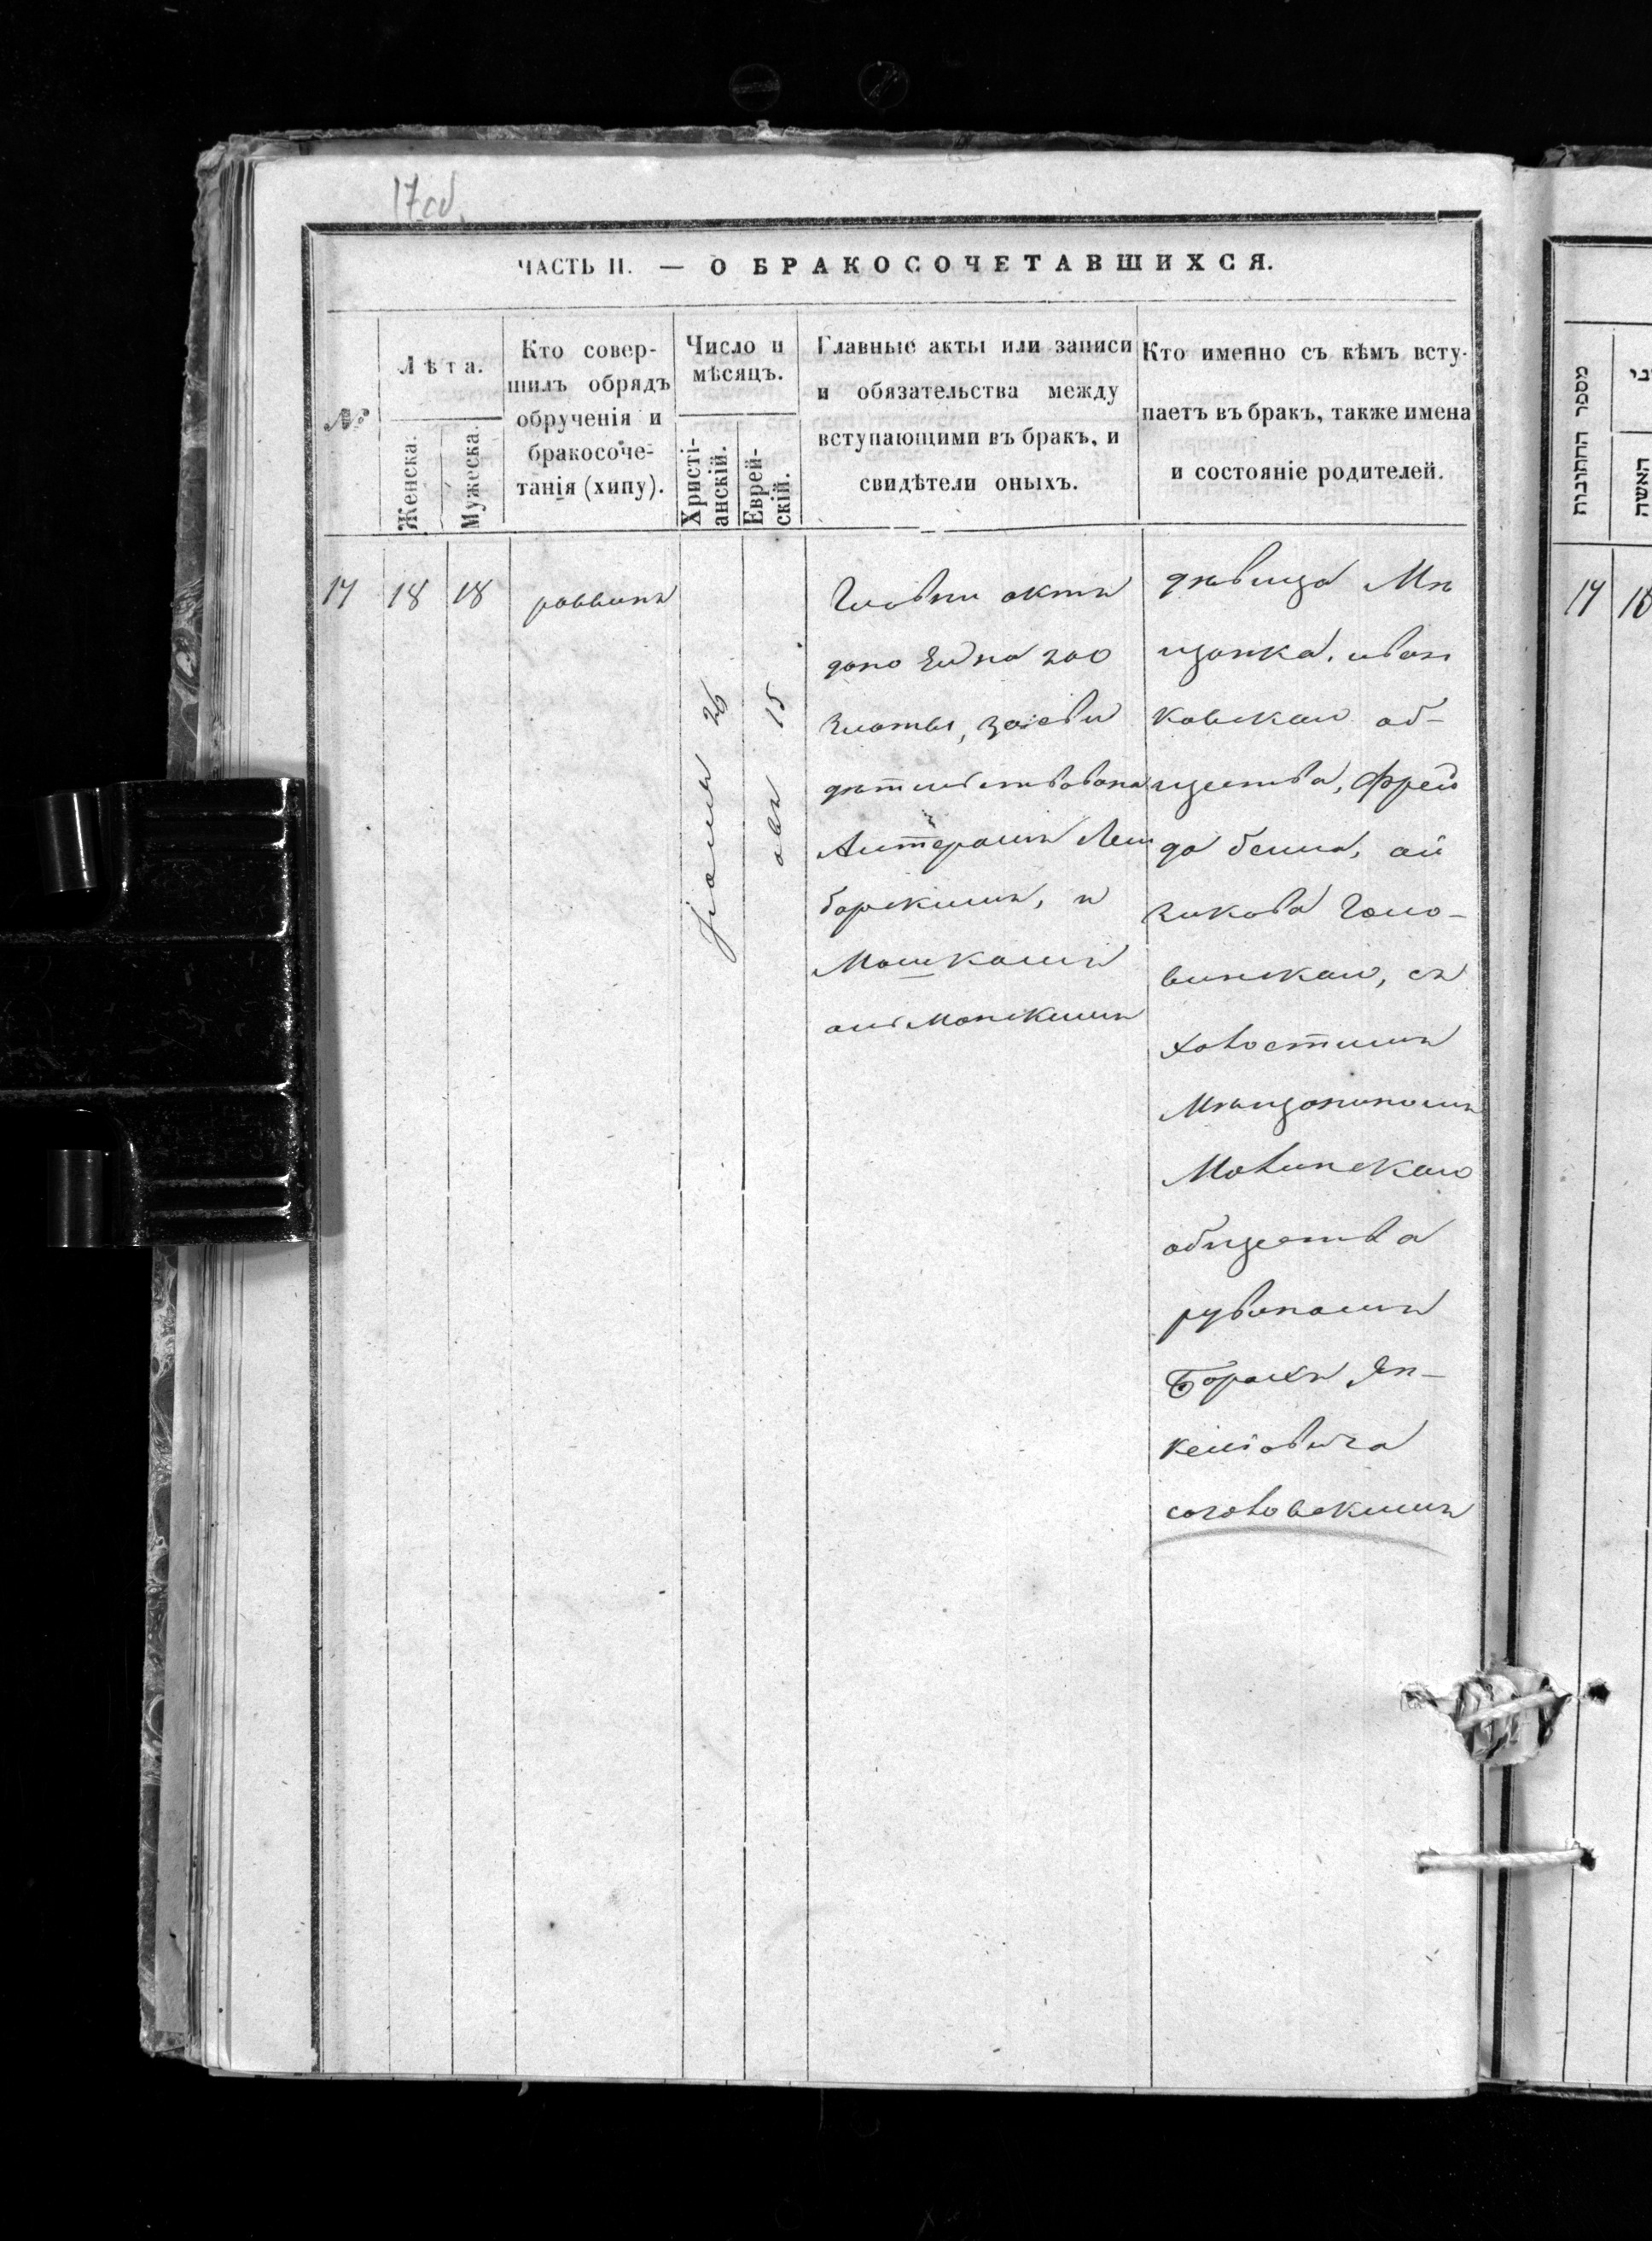 17 об.
ЧАСТЬ II. — О БРАКОСОЧЕТАВШИХСЯ.
№
Лѣта.
Женска.
Мужеска.
Кто совер-
шилъ обрядъ
обрученія и
бракосоче-
танія (хипу).
Число и
мѣсяцъ.
Христі-
анскій.
Еврей-
скій.
Главные акты или записи
и обязательства между
вступающими въ бракъ, и
свидѣтели оныхъ.
Кто именно съ кѣмъ всту-
паетъ въ бракъ, также имена
и состояніе родителей.
17
18
18
раввинъ
26
15
авъ
актъ
данъ на 200
злоты, засви
дѣтельствована
Алтеромъ
барскимъ, и
Мошкомъ
ольманскимъ
дѣвица Мѣ
щанка, иван
ковскаго об-
щества, Фрей
да бейла, ай
зикова Голо-
винская, съ
холостимъ
Мѣщаниномъ
Малинскаго
общества
рувиномъ
Борохъ Ян-
келіовича
מספר החתונות
האשה
17
18